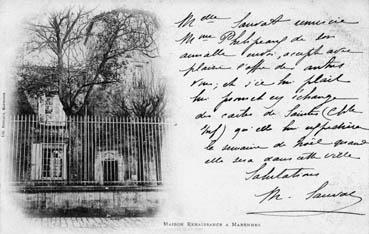 Melle Sauvat remercie
Mme Philipeaux de son
aimable envoi, accepte avec
plaisir l'offre de
vues; et si ce lui plait
lui promet en échange
des cartes de Saintes (Chte
Inf) qu'elle lui expédiera
la semaine de Noël quand
elle sera dans cette ville
Salutations
M. Sauvat
MAISON RENAISSANCE A MARENNES